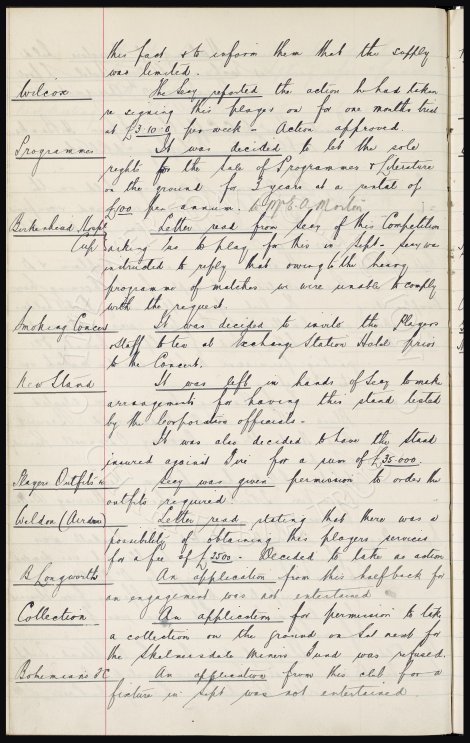 this fact & to inform them that the supply
was limited.
Wilcox
The Secy reported the action he had taken
re signing this player on for one months trial
at £3.10.0 per week - Action approved.
Programmes
It was decided to let the sole
rights for the sale of Programmes & Literature
on the ground for 3 years at a rental of
£100 per annum. to Mr E. A. Morton
Birkenhead Hospl
Cup
Letter read from Secy of this Competition
asking us to play for this in Sept - Secy was
instructed to reply that owing to the heavy
programme of matches we were unable to comply
with the request.
Smoking Concert
It was decided to invite the Players
& Staff to tea at Exchange Station Hotel prior
to the Concert.
New Stand
It was left in hands of Secy to make
arrangements for having this stand tested
by the Corporation officials -
It was also decided to have the Stand
insured against Fire for a sum of £35.000.
Players Outfits
Secy was given permission to order the
outfits required
Weldon (Airdrie)
Letter read stating that there was a
possibility of obtaining this players services
for a fee of £2500 - Decided to take no action
B Longworth
An application from this halfback for
an engagement was not entertained
Collection
An application for permission to take
a collection on the ground on Sat next for
the Skelmersdale Miners Fund was refused.
Bohemians FC
An application from this club for a
fixture in Sept was not entertained